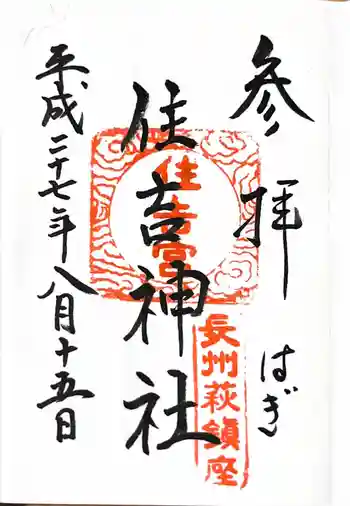 参拝
はぎ
住吉神社
住吉宮
長州萩鎮座
平成二十七年八月十五日